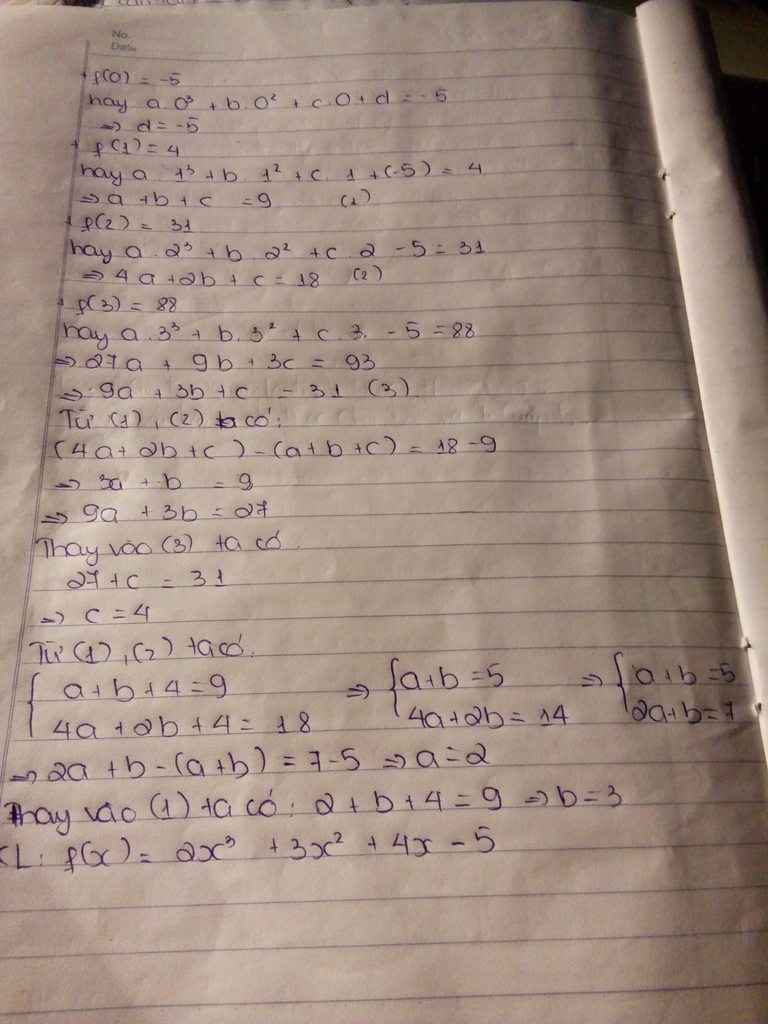 No.
Date.
+ f(0) = -5
hay a.0³ + b.0² + c.0 + d = -5
⇒ d = -5
+ f(1) = 4
hay a. 1³ + b. 1² + c. 1 + (-5) = 4
⇒ a + b + c = 9 (1)
+ f(2) = 31
hay a. 2³ + b. 2² + c. 2 - 5 = 31
⇒ 4a + 2b + c = 18 (2)
+ f(3) = 88
hay a. 3³ + b. 3² + c. 3. - 5 = 88
⇒ 27a + 9b + 3c = 93
⇒ 9a + 3b + c = 31 (3)
Từ (1), (2) ta có:
(4a + 2b + c) - (a + b + c) = 18 - 9
⇒ 3a + b = 9
⇒ 9a + 3b = 27
Thay vào (3) ta có
27 + c = 31
⇒ c = 4
Từ (1), (2) ta có.
{ a + b + 4 = 9 ⇒ { a + b = 5 ⇒ { a + b = 5
4a + 2b + 4 = 18 4a + 2b = 14 2a + b = 7
⇒ 2a + b - (a + b) = 7 - 5 ⇒ a = 2
Thay vào (1) ta có: 2 + b + 4 = 9 ⇒ b = 3
KL: f(x) = 2x³ + 3x² + 4x - 5